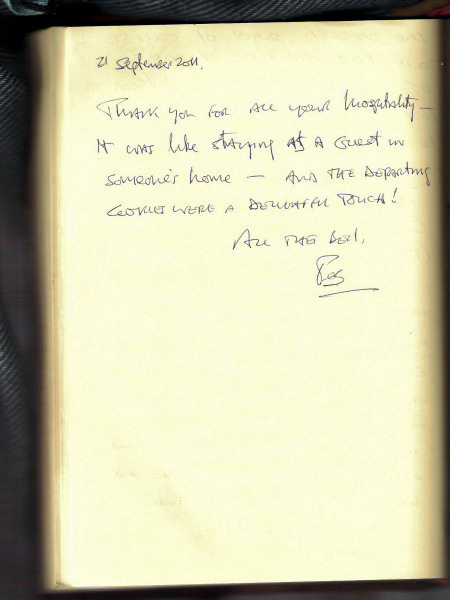 21 September 2011.
Thank you for all your hospitality –
It was like staying as a guest in
someone's home – and the departing
cookies were a delightful touch!
All the best,